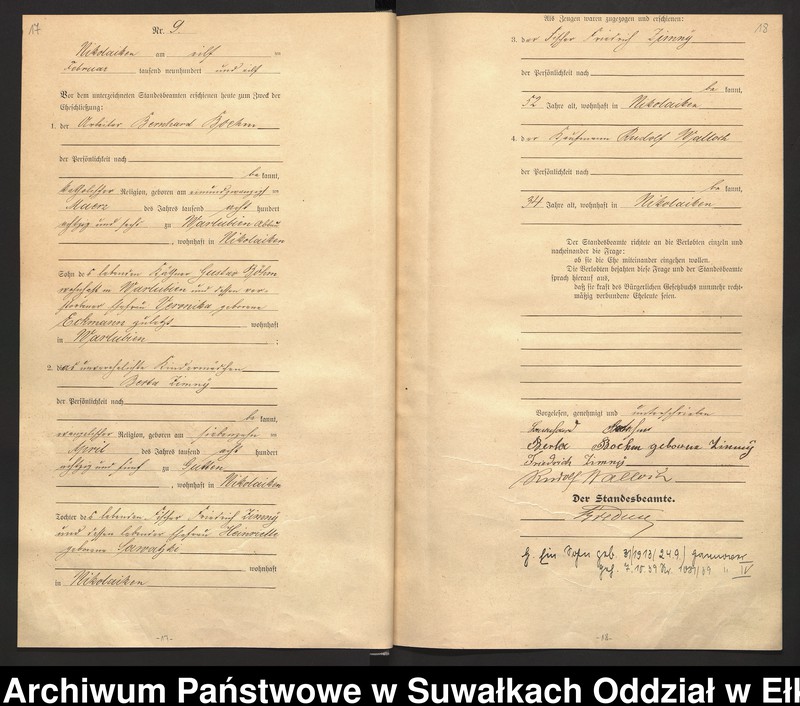 17
Nr. 9.
Nikolaiken am eilf
Februar tausend neunhundert und eilf
Vor dem unterzeichneten Standesbeamten erschienen heute zum Zweck der
Eheschließung:
1. der Arbeiter Bernhard Boehm
der Persönlichkeit nach
be kannt,
katholischer Religion, geboren am einundzwanzig
Maerz des Jahres tausend acht hundert
achtzig und sechs zu Warlubien
, wohnhaft in Nikolaiken
Sohn des lebenden Käthner Gustav Böhm
wohnhaft in Warlubien und dessen ver-
storbener Ehefrau Veronika geborene
Eckmann zuletzt wohnhaft
in Warlubien ;
2. die unverehelichte Kindermädchen
Berta Zimny
der Persönlichkeit nach
be kannt,
evangelischer Religion, geboren am siebenzehn
April des Jahres tausend acht hundert
achtzig und fünf zu Gutten
, wohnhaft in Nikolaiken
Tochter des lebenden Fischer Friedrich Zimny
und dessen lebender Ehefrau Heinriette
geborene Sawatzki
wohnhaft
in Nikolaiken
-17-
18
Als Zeugen waren zugezogen und erschienen:
3. der Fischer Friedrich Zimny
der Persönlichkeit nach
be kannt,
52 Jahre alt, wohnhaft in Nikolaiken
4. der Kaufmann Rudolf Walloch
der Persönlichkeit nach
be kannt,
34 Jahre alt, wohnhaft in Nikolaiken
Der Standesbeamte richtete an die Verlobten einzeln und
nacheinander die Frage:
ob sie die Ehe miteinander eingehen wollen.
Die Verlobten bejahten diese Frage und der Standesbeamte
sprach hierauf aus,
daß sie kraft des Bürgerlichen Gesetzbuchs nunmehr recht-
mäßig verbundene Eheleute seien.
Vorgelesen, genehmigt und unterschrieben
Bernhard Boehm
Berta Boehm geborene Zimny
Friedrich Zimny
Rudolf Walloch
Der Standesbeamte.
Ein Sohn geb. 31/1913/ 249/ Hannover
geh. 7.10.39 Nr. 1039/39 IV
-18-
Archiwum Państwowe w Suwałkach Oddział w Ełk